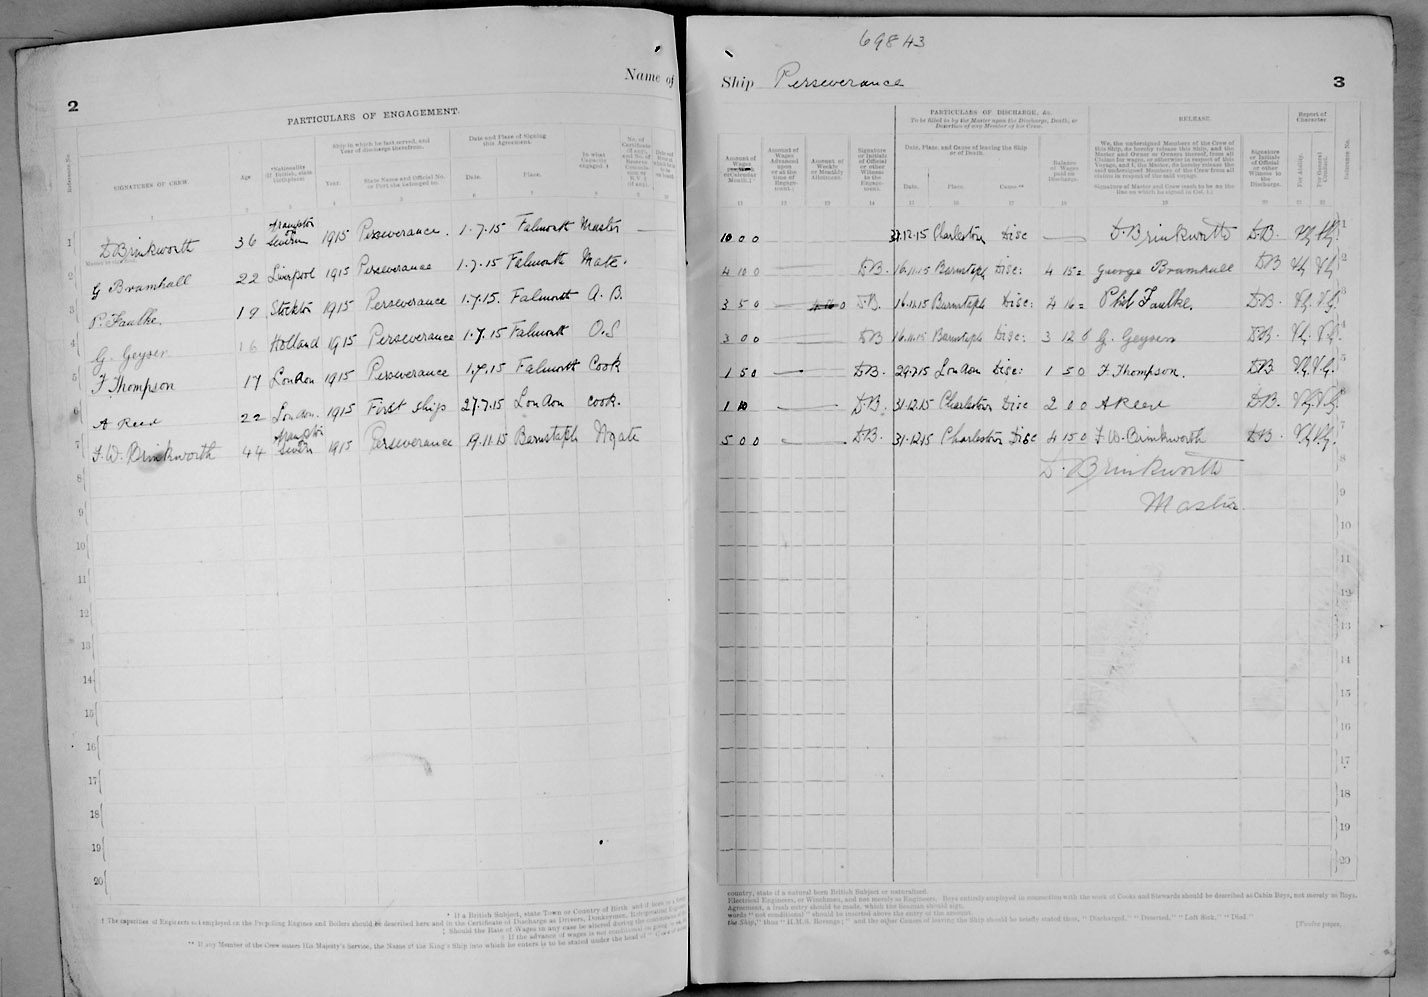 69843
2
Name of
Ship Perseverance
3
PARTICULARS OF ENGAGEMENT.
PARTICULARS OF DISCHARGE, &c.
To be filled in by the Master upon the Discharge, Death, or Desertion of any Member of his Crew.
RELEASE.
Report of Character
Reference No.
SIGNATURES OF CREW.
Age
Nationality
Ship in which he last served, and Year of discharge therefrom.
Year.
State Name and Official No. or Port she belonged to.
Date and Place of Signing this Agreement.
Date.
Place.
In what Capacity engaged.
Amount of Wages
Amount of Wages Advanced upon or at the time of Engagement.
Amount of Weekly or Monthly Allotment.
Signature or Initials of Official or other Witness to the Engagement.
Date, Place, and Cause of leaving the Ship or of Death.
Date.
Place.
Cause.**
Balance of Wages paid on Discharge.
Signature or Initials of Official or other Witness to the Discharge.
For Ability.
For General Conduct.
Reference No.
1 D Brinkworth 36 Frampton on Severn 1915 Perseverance. 1.7.15 Falmouth Master
10 0 0 31.12.15 Charleston Disc D. Brinkworth D.B. V.G. V.G. 1
2 G Bramhall 22 Liverpool 1915 Perseverance 1.7.15 Falmouth Mate.
4 10 0 D.B. 16.11.15 Barnstaple Disc: 4 15 = George Bramhall D B V.G. V.G. 2
3 P. Faulke. 19 Stockton 1915 Perseverance 1.7.15. Falmouth A.B.
3 5 0 D.B. 16.11.15 Barnstaple Disc: 4 16 = Phil Faulke. D.B. V.G. V.G. 3
4 G. Geysen 16 Holland 1915 Perseverance 1.7.15 Falmouth O.S
3 0 0 D B 16.11.15 Barnstaple Disc: 3 12 G. Geysen D.B. V.G. V.G. 4
5 F Thompson 17 London 1915 Perseverance 1.7.15 Falmouth Cook
1 5 0 D.B. 29.7.15 London Disc: 1 5 0 F. Thompson. D.B V.G. V.G. 5
6 A Reed 22 London. 1915 First ship 27.7.15 London cook.
1 10 D.B. 31.12.15 Charleston Disc 2 0 0 A Reed D.B. V.G. V.G. 6
7 F. W. Brinkworth 44 Frampton Severn 1915 Perseverance 19.11.15 Barnstaple Mate
5 0 0 D.B. 31.12.15 Charleston Disc 4 15 0 F. W. Brinkworth D.B. V.G. V.G. 7
8 D. Brinkworth 8
9 Master. 9
10 10
11 11
12 12
13 13
14 14
15 15
16 16
17 17
18 18
19 19
20 20
* If a British Subject, state Town or Country of Birth, and if born in a
country, state if a natural born British Subject or naturalised.
† The capacities of Engineers not employed on the Propelling Engines and Boilers should be described here and in the Certificate of Discharge as Drivers, Donkeymen, Refrigerating
Electrical Engineers, or Winchmen, and not merely as Engineers. Boys entirely employed in connection with the work of Cooks and Stewards should be described as Cabin Boys, not merely as Boys.
‡ Should the Rate of Wages in any case be altered during the
Agreement, a fresh entry should be made, which the Seaman should sign.
§ If the advance of wages is not conditional on going
words "not conditional" should be inserted above the entry of the amount.
** If any Member of the Crew enters His Majesty's Service, the Name of the King's Ship into which he enters is to be stated under the head of "
the Ship," thus "H.M.S. Revenge;" and the other Causes of leaving the Ship should be briefly stated thus, "Discharged," "Deserted," "Left Sick," "Died."
[Twelve pages.